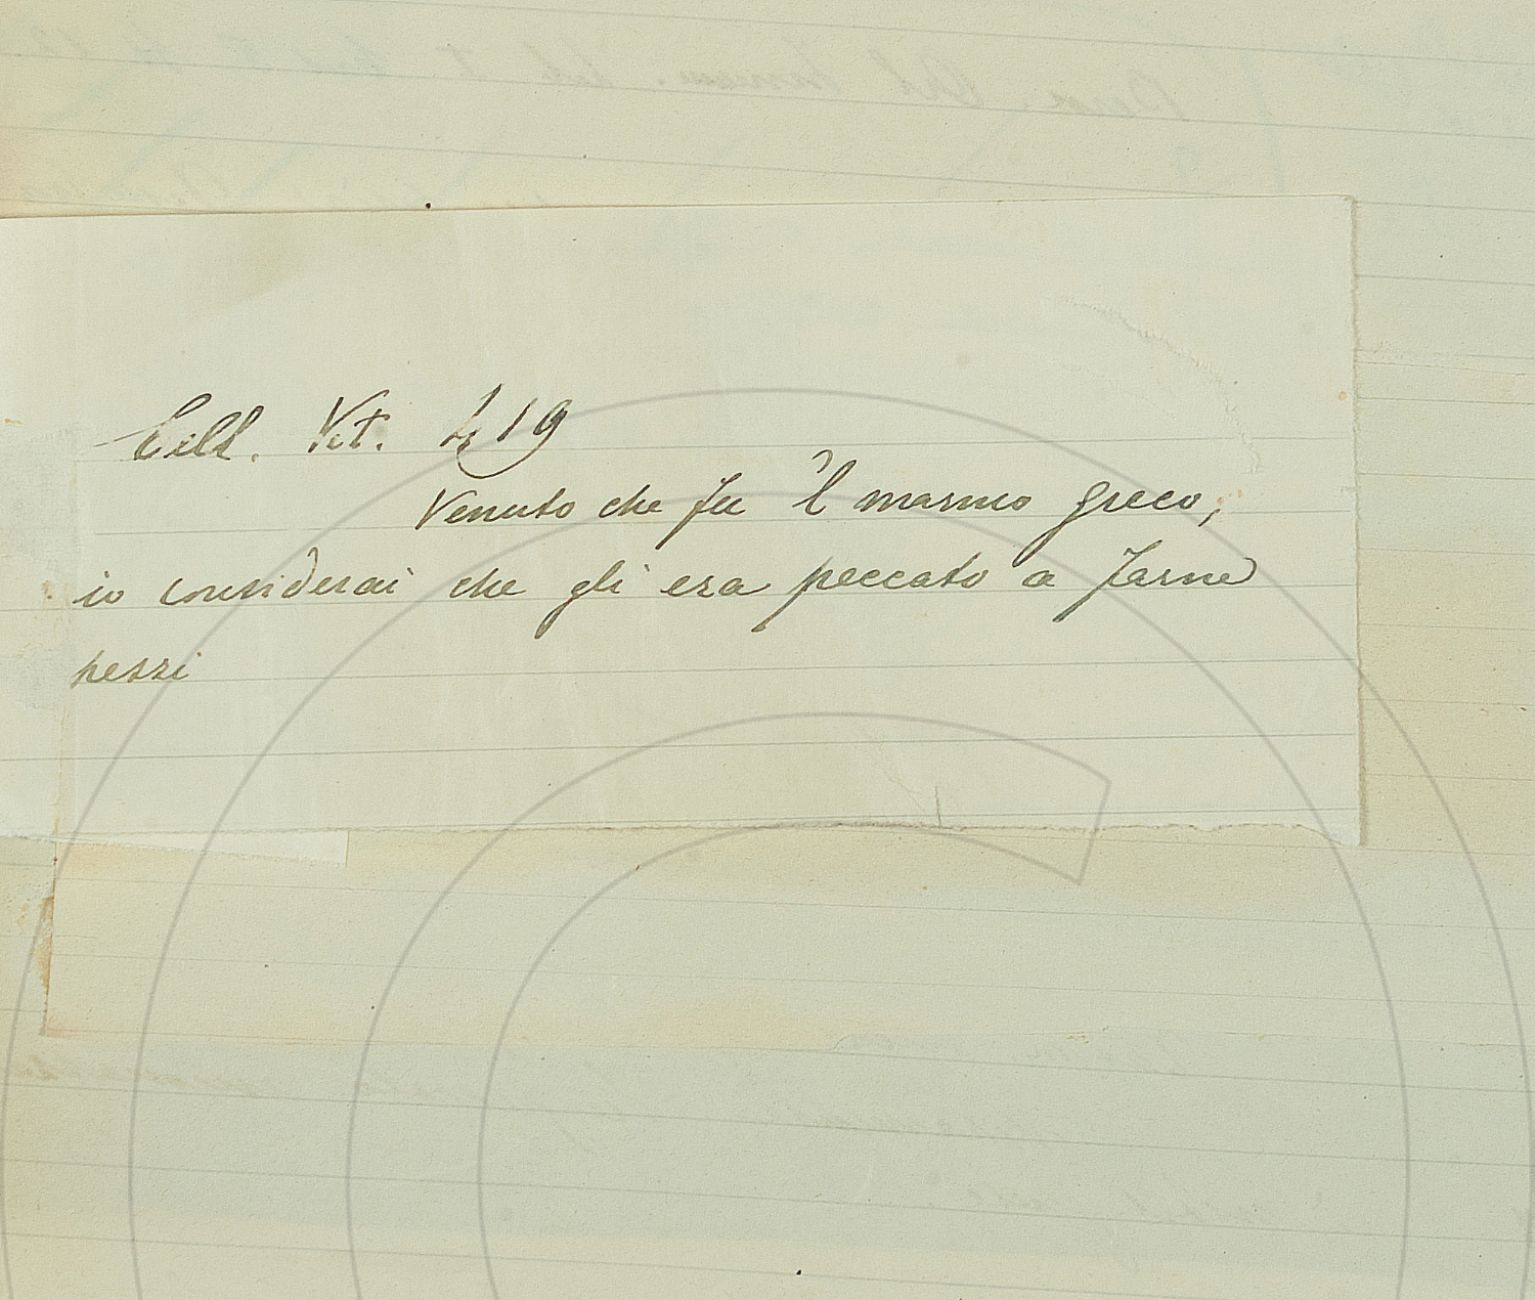 Cell. Vit. 419
Venuto che fu 'l marmo greco,
io considerai che gli era peccato a farne
pezzi